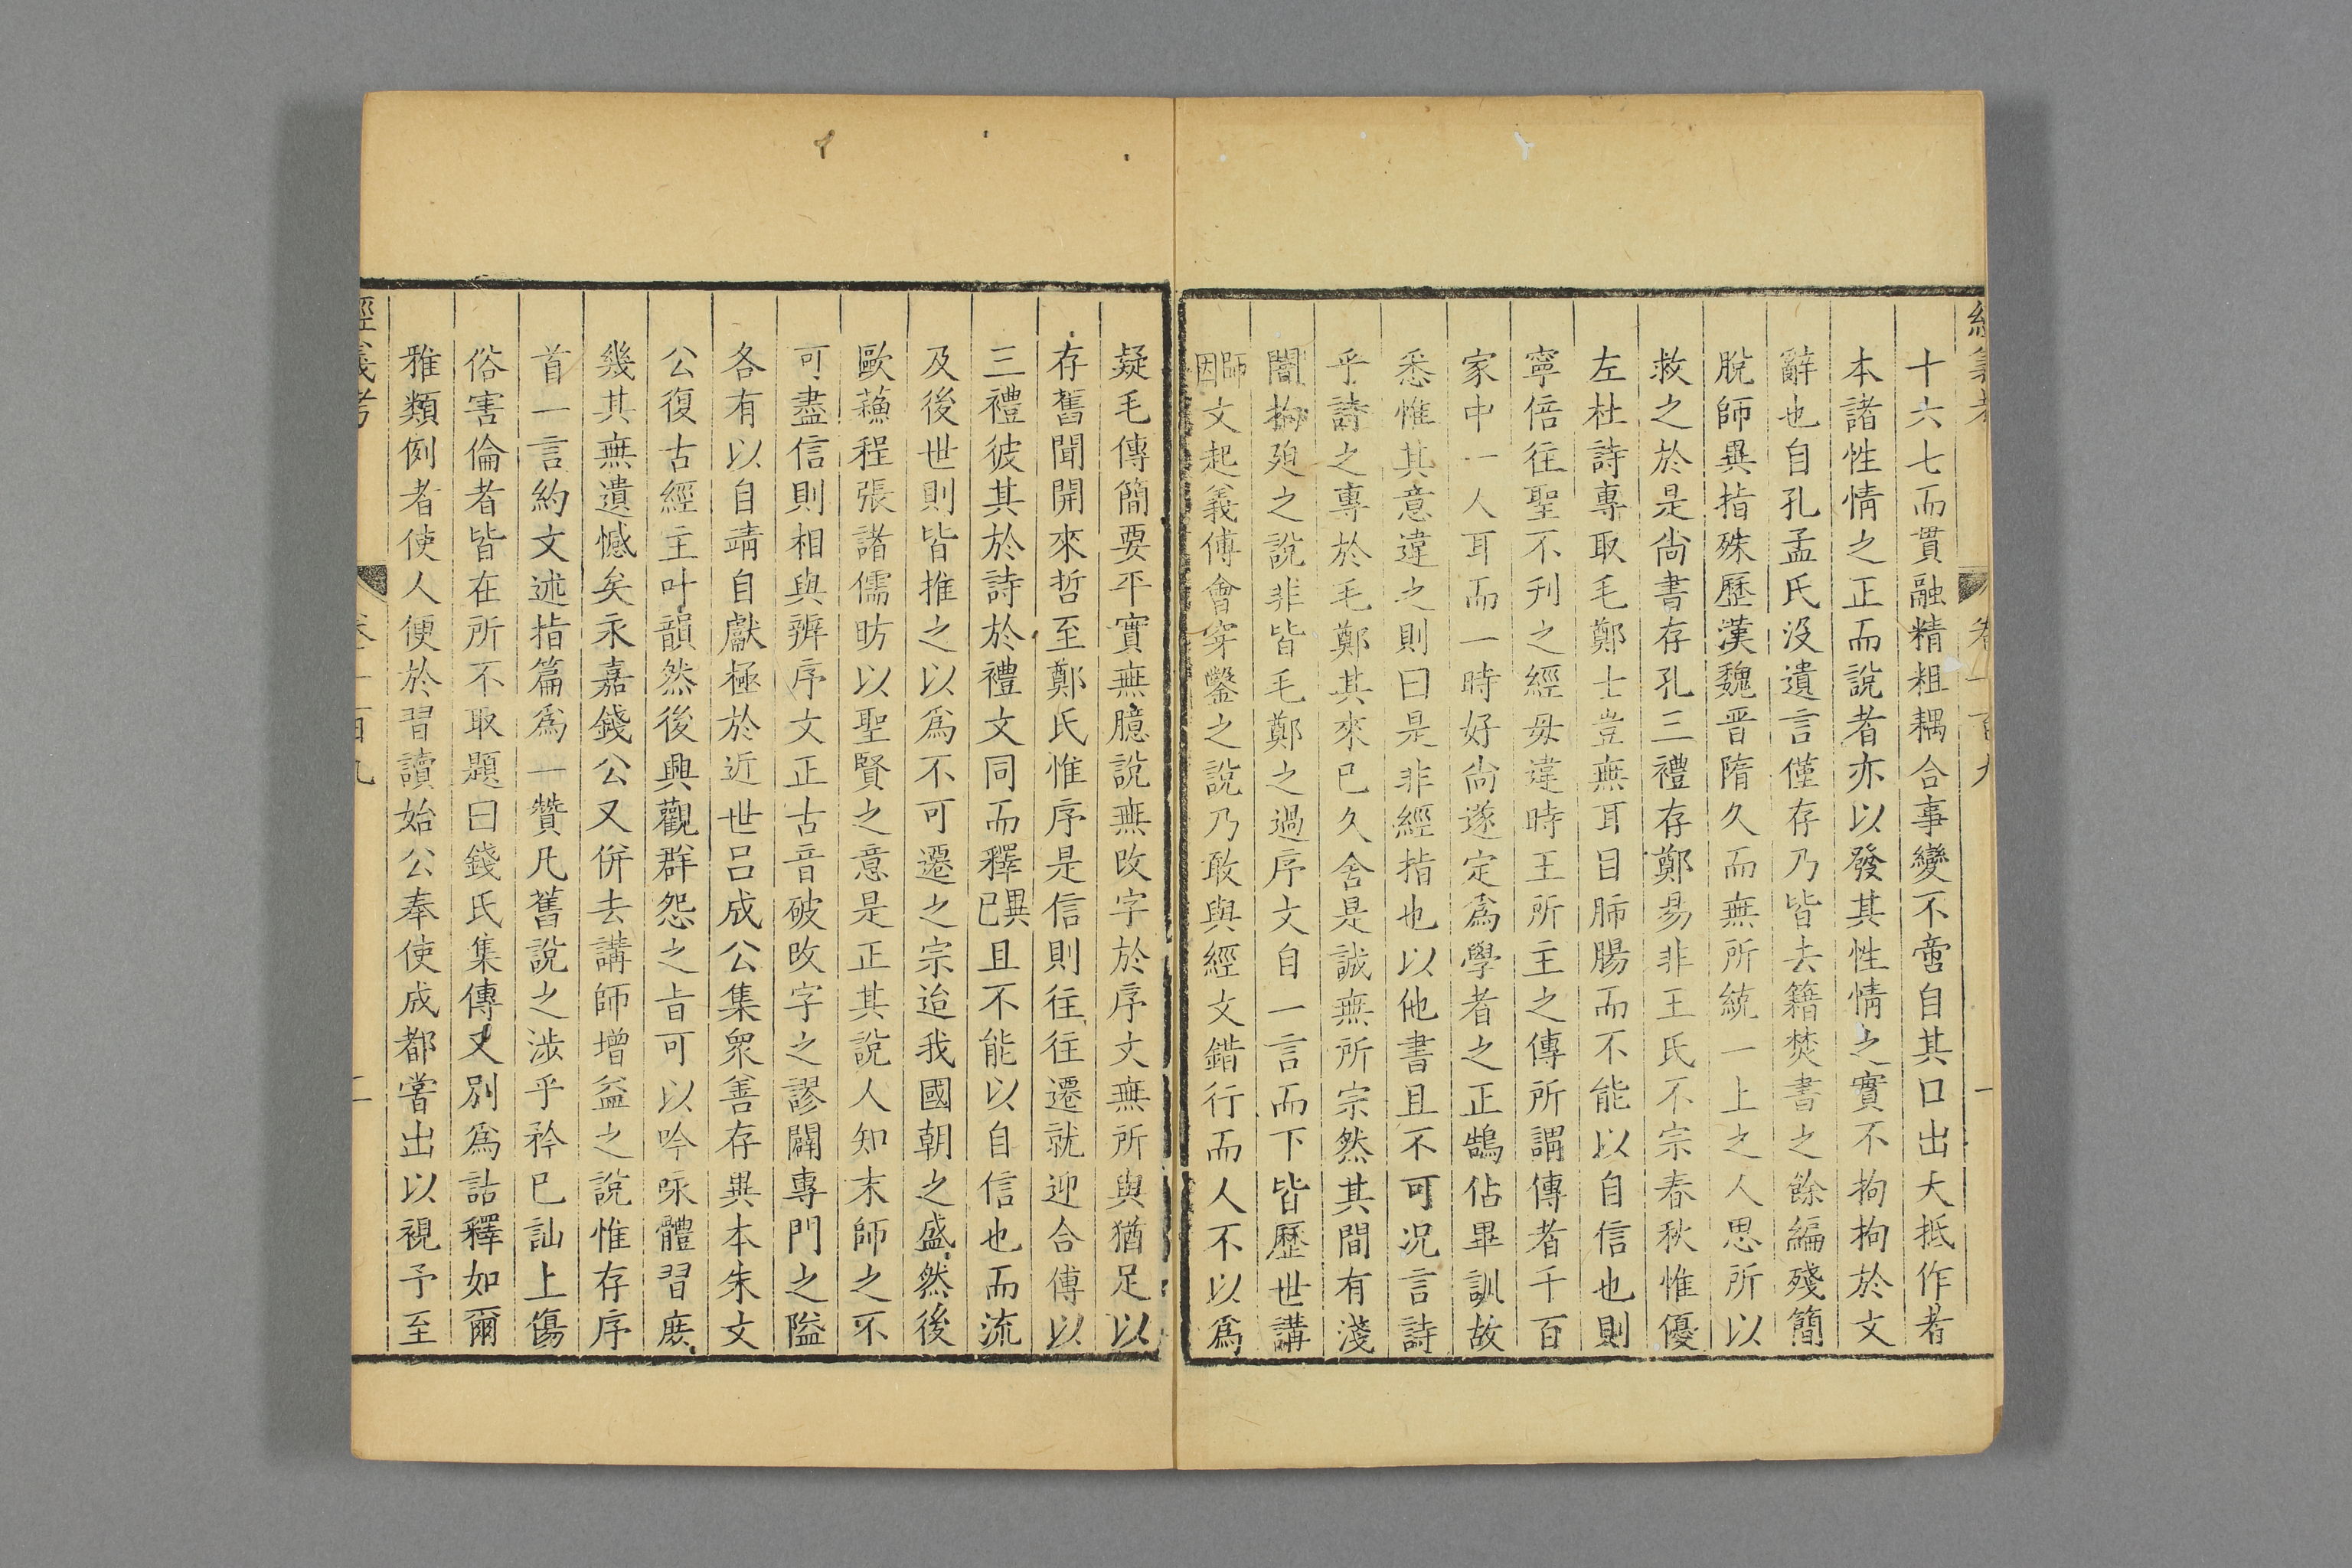 經義考
卷一百九
一
十六七而貫融精粗耦合事變不啻自其口出大抵作者
本諸性情之正而說者亦以發其性情之實不拘拘於文
辭也自孔孟氏沒遺言僅存乃皆去籍焚書之餘編殘簡
脫師異指殊歷漢魏晋隋久而無所統一上之人思所以
救之於是尚書存孔三禮存鄭易非王氏不宗春秋惟優
左杜詩專取毛鄭士豈無耳目肺腸而不能以自信也則
寧倍往聖不刊之經毋違時王所主之傳所謂傳者千百
家中一人耳而一時好尚遂定為學者之正鵠佔畢訓故
悉惟其意違之則曰是非經指也以他書且不可況言詩
乎詩之專於毛鄭其來已久舍是誠無所宗然其間有淺
闇拘迫之說非皆毛鄭之過序文自一言而下皆歷世講
師因文起義傅會穿鑿之說乃敢與經文錯行而人不以爲
疑毛傳簡要平實無臆說無改字於序文無所與猶足以
存舊聞開來哲至鄭氏惟序是信則往往遷就迎合傅以
三禮彼其於詩於禮文同而釋異已且不能以自信也而流
及後世則皆推之以爲不可遷之宗迨我國朝之盛然後
歐蘓程張諸儒昉以聖賢之意是正其說人知末師之不
可盡信則相與辨序文正古音破改字之謬闢專門之隘
各有以自靖自獻極於近世吕成公集衆善存異本朱文
公復古經主叶韻然後興觀群怨之旨可以吟咏體習庶
幾其無遺憾矣永嘉錢公又併去講師增益之說惟存序
首一言約文述指篇爲一贊凡舊說之涉乎矜已訕上傷
俗害倫者皆在所不取題曰錢氏集傳又別爲詁釋如爾
雅類例者使人便於習讀始公奉使成都嘗出以視予至
經義考
卷一百九
二